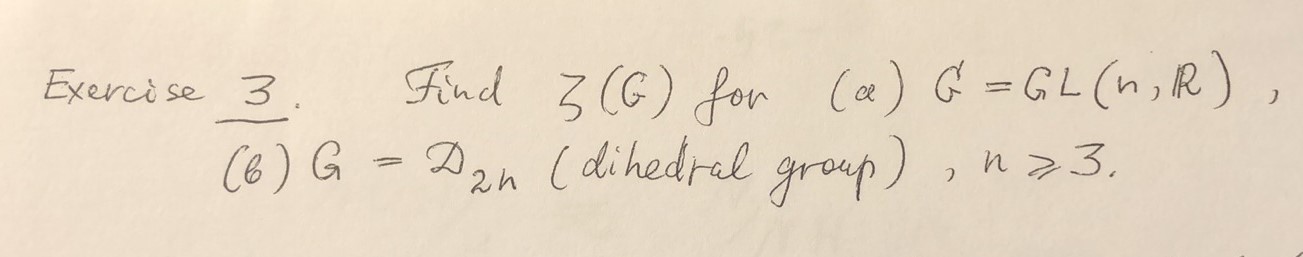 Exercise 3. Find ζ(G) for (a) G = GL(n, ℝ),
(b) G = D₂ₙ (dihedral group), n ⩾ 3.